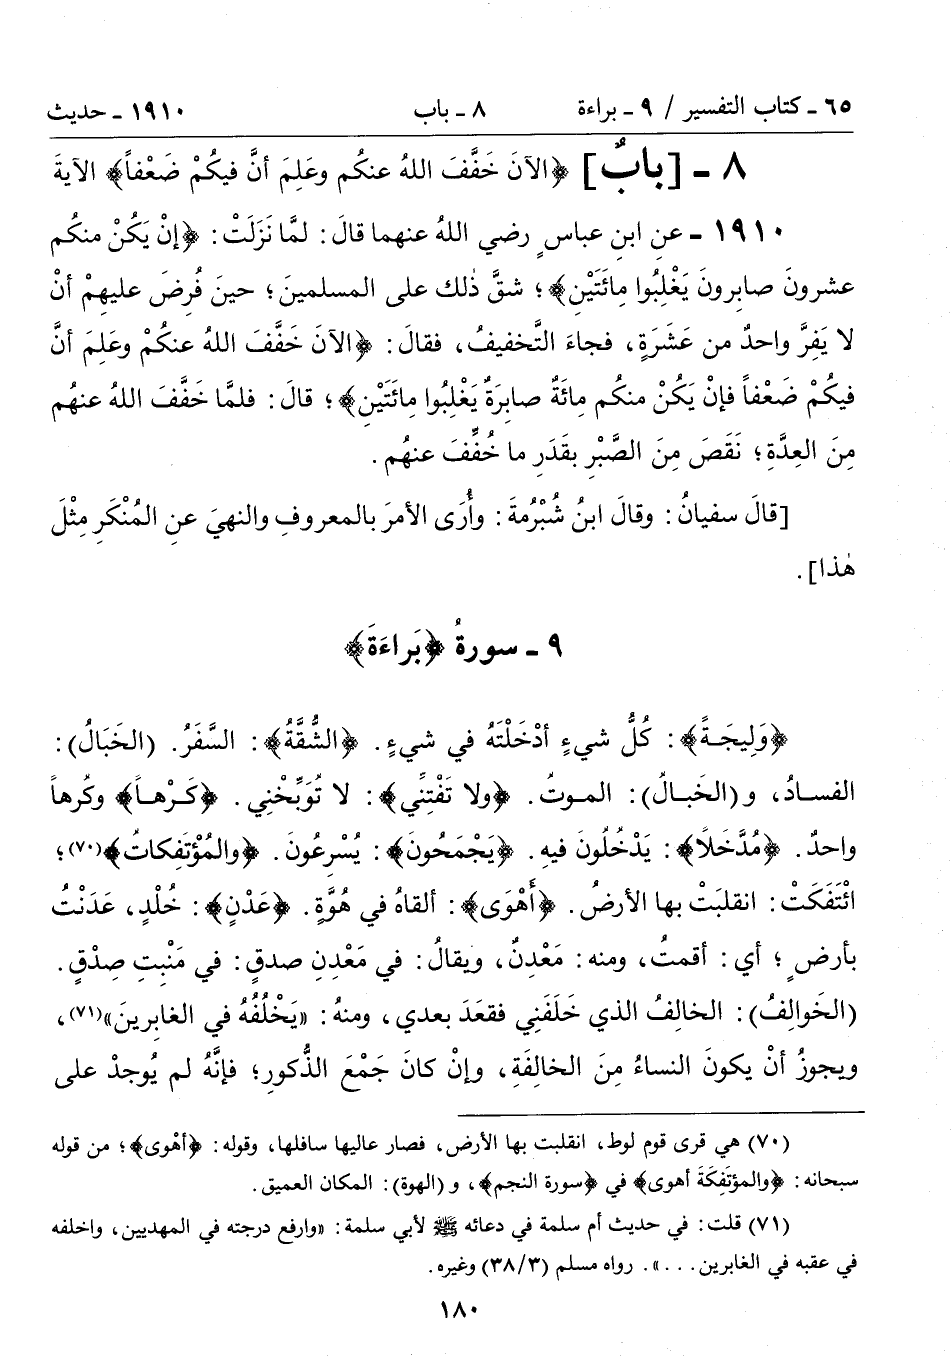 ٦٥ - كتاب التفسير / ٩ - براءة ٨ - باب ١٩١٠ - حديث
٨ - [بابٌ] ﴿الآنَ خَفَّفَ اللهُ عنكُم وعَلِمَ أنَّ فيكُمْ ضَعْفاً﴾ الآيةَ
١٩١٠ - عنِ ابنِ عباسٍ رضي اللهُ عنهما قالَ: لمَّا نَزَلَتْ: ﴿إنْ يَكُنْ منكُم
عشرونَ صابِرونَ يَغْلِبُوا مِائَتَيْنِ﴾؛ شقَّ ذٰلك على المسلمينَ؛ حينَ فُرِضَ عليهِمْ أنْ
لا يَفِرَّ واحدٌ من عَشَرَةٍ، فجاءَ التَّخفيفُ، فقالَ: ﴿الآنَ خَفَّفَ اللهُ عنكُمْ وعَلِمَ أنَّ
فيكُمْ ضَعْفاً فإنْ يَكُنْ منكُم مِائَةٌ صابِرَةٌ يَغْلِبُوا مِائَتَيْنِ﴾؛ قالَ: فلمَّا خَفَّفَ اللهُ عنهُم
مِنَ العِدَّةِ؛ نَقَصَ مِنَ الصَّبْرِ بقَدَرِ ما خُفِّفَ عنهُم.
[قالَ سفيانُ: وقالَ ابنُ شُبْرُمةَ: وأُرَى الأمرَ بالمعروفِ والنهيَ عنِ المُنْكَرِ مِثْلَ
هٰذا].
٩ - سورةُ ﴿بَراءَةَ﴾
﴿وَلِيجَةً﴾: كُلُّ شيءٍ أدْخَلْتَهُ في شيءٍ. ﴿الشُّقَّةُ﴾: السَّفَرُ. (الخَبَالُ):
الفسادُ، و(الخَبالُ): الموتُ. ﴿ولا تَفْتِنِّي﴾: لا تُوَبِّخْنِي. ﴿كَرْهاً﴾ وكُرهاً
واحدٌ. ﴿مُدَّخَلاً﴾: يَدْخُلُونَ فيهِ. ﴿يَجْمَحُونَ﴾: يُسْرِعُونَ. ﴿والمُؤْتَفِكاتُ﴾(٧٠)؛
ائْتَفَكَتْ: انقلبَتْ بها الأرضُ. ﴿أَهْوَى﴾: ألقاهُ في هُوَّةٍ. ﴿عَدْنٍ﴾: خُلْدٍ، عَدَنْتُ
بأرضٍ؛ أي: أقمتُ، ومنه: مَعْدِنٌ، ويقالُ: في مَعْدِنِ صدقٍ: في مَنْبِتِ صِدْقٍ.
(الخَوالِفُ): الخالِفُ الذي خَلَفَنِي فقعَدَ بعدي، ومنهُ: «يَخْلُفُهُ في الغابِرينَ»(٧١)،
ويجوزُ أنْ يكونَ النساءُ مِنَ الخالِفَةِ، وإنْ كانَ جَمْعَ الذُّكورِ؛ فإنَّهُ لم يُوجدْ على
(٧٠) هي قرى قوم لوط، انقلبت بها الأرض، فصار عاليها سافلها، وقوله: ﴿أهْوى﴾؛ من قوله
سبحانه: ﴿والمؤتَفِكَةَ أهوى﴾ في ﴿سورة النجم﴾، و(الهوة): المكان العميق.
(٧١) قلت: في حديث أم سلمة في دعائه ﷺ لأبي سلمة: «وارفع درجته في المهديين، واخلفه
في عقبه في الغابرين...». رواه مسلم (٣/٣٨) وغيره.
١٨٠